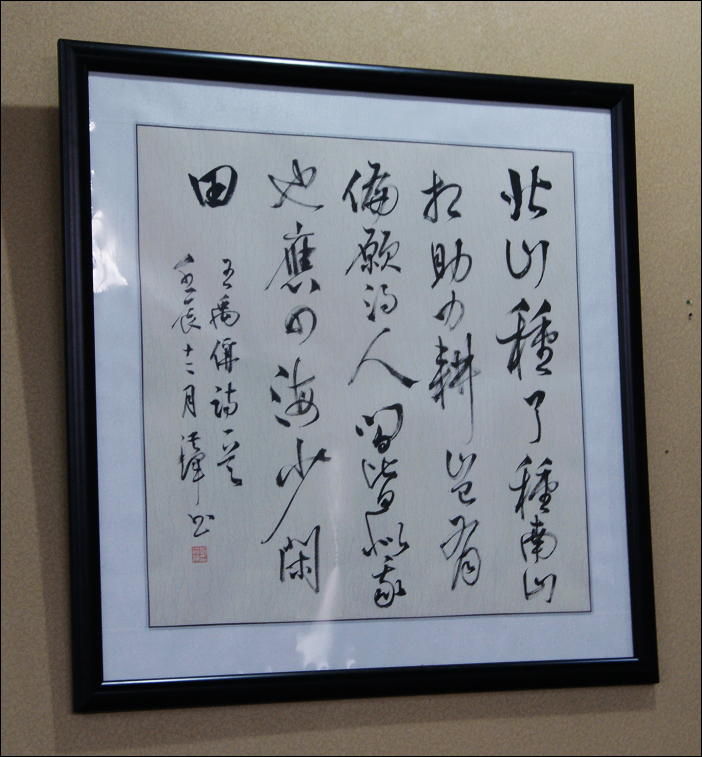 北山種了種南山
相助力耕豈有
偏願得人間皆似我
也應四海少閑
田
王禹偁詩一首
壬辰十二月 书